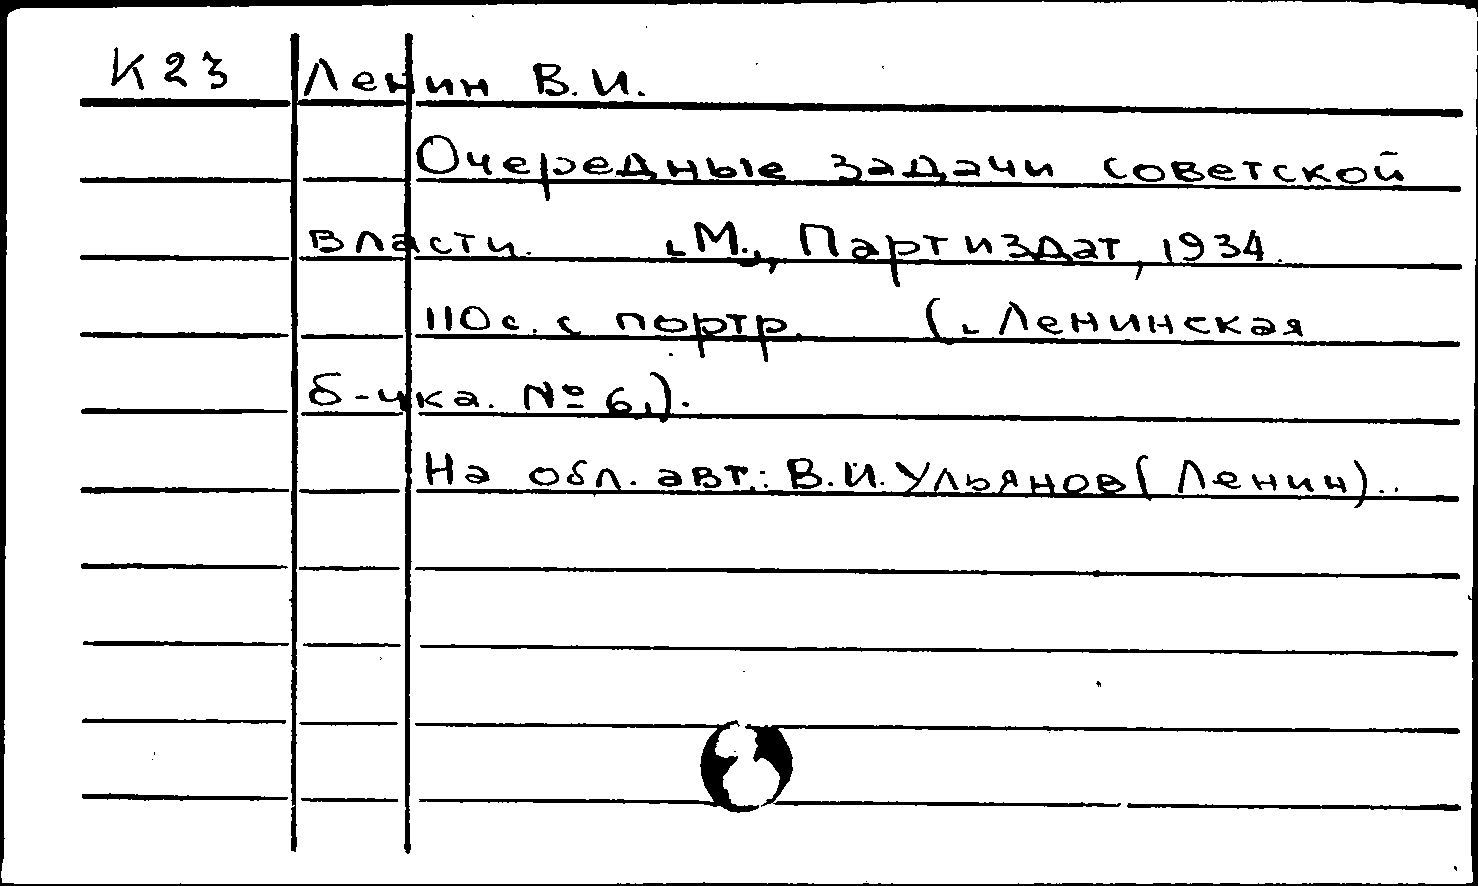 К23 Ленин В.И.
Очередные задачи советской
власти. [М.], Партиздат, 1934.
110 с. с портр. ([Ленинская
б-чка. № 6]).
На обл. авт.: В.И. Ульянов (Ленин).